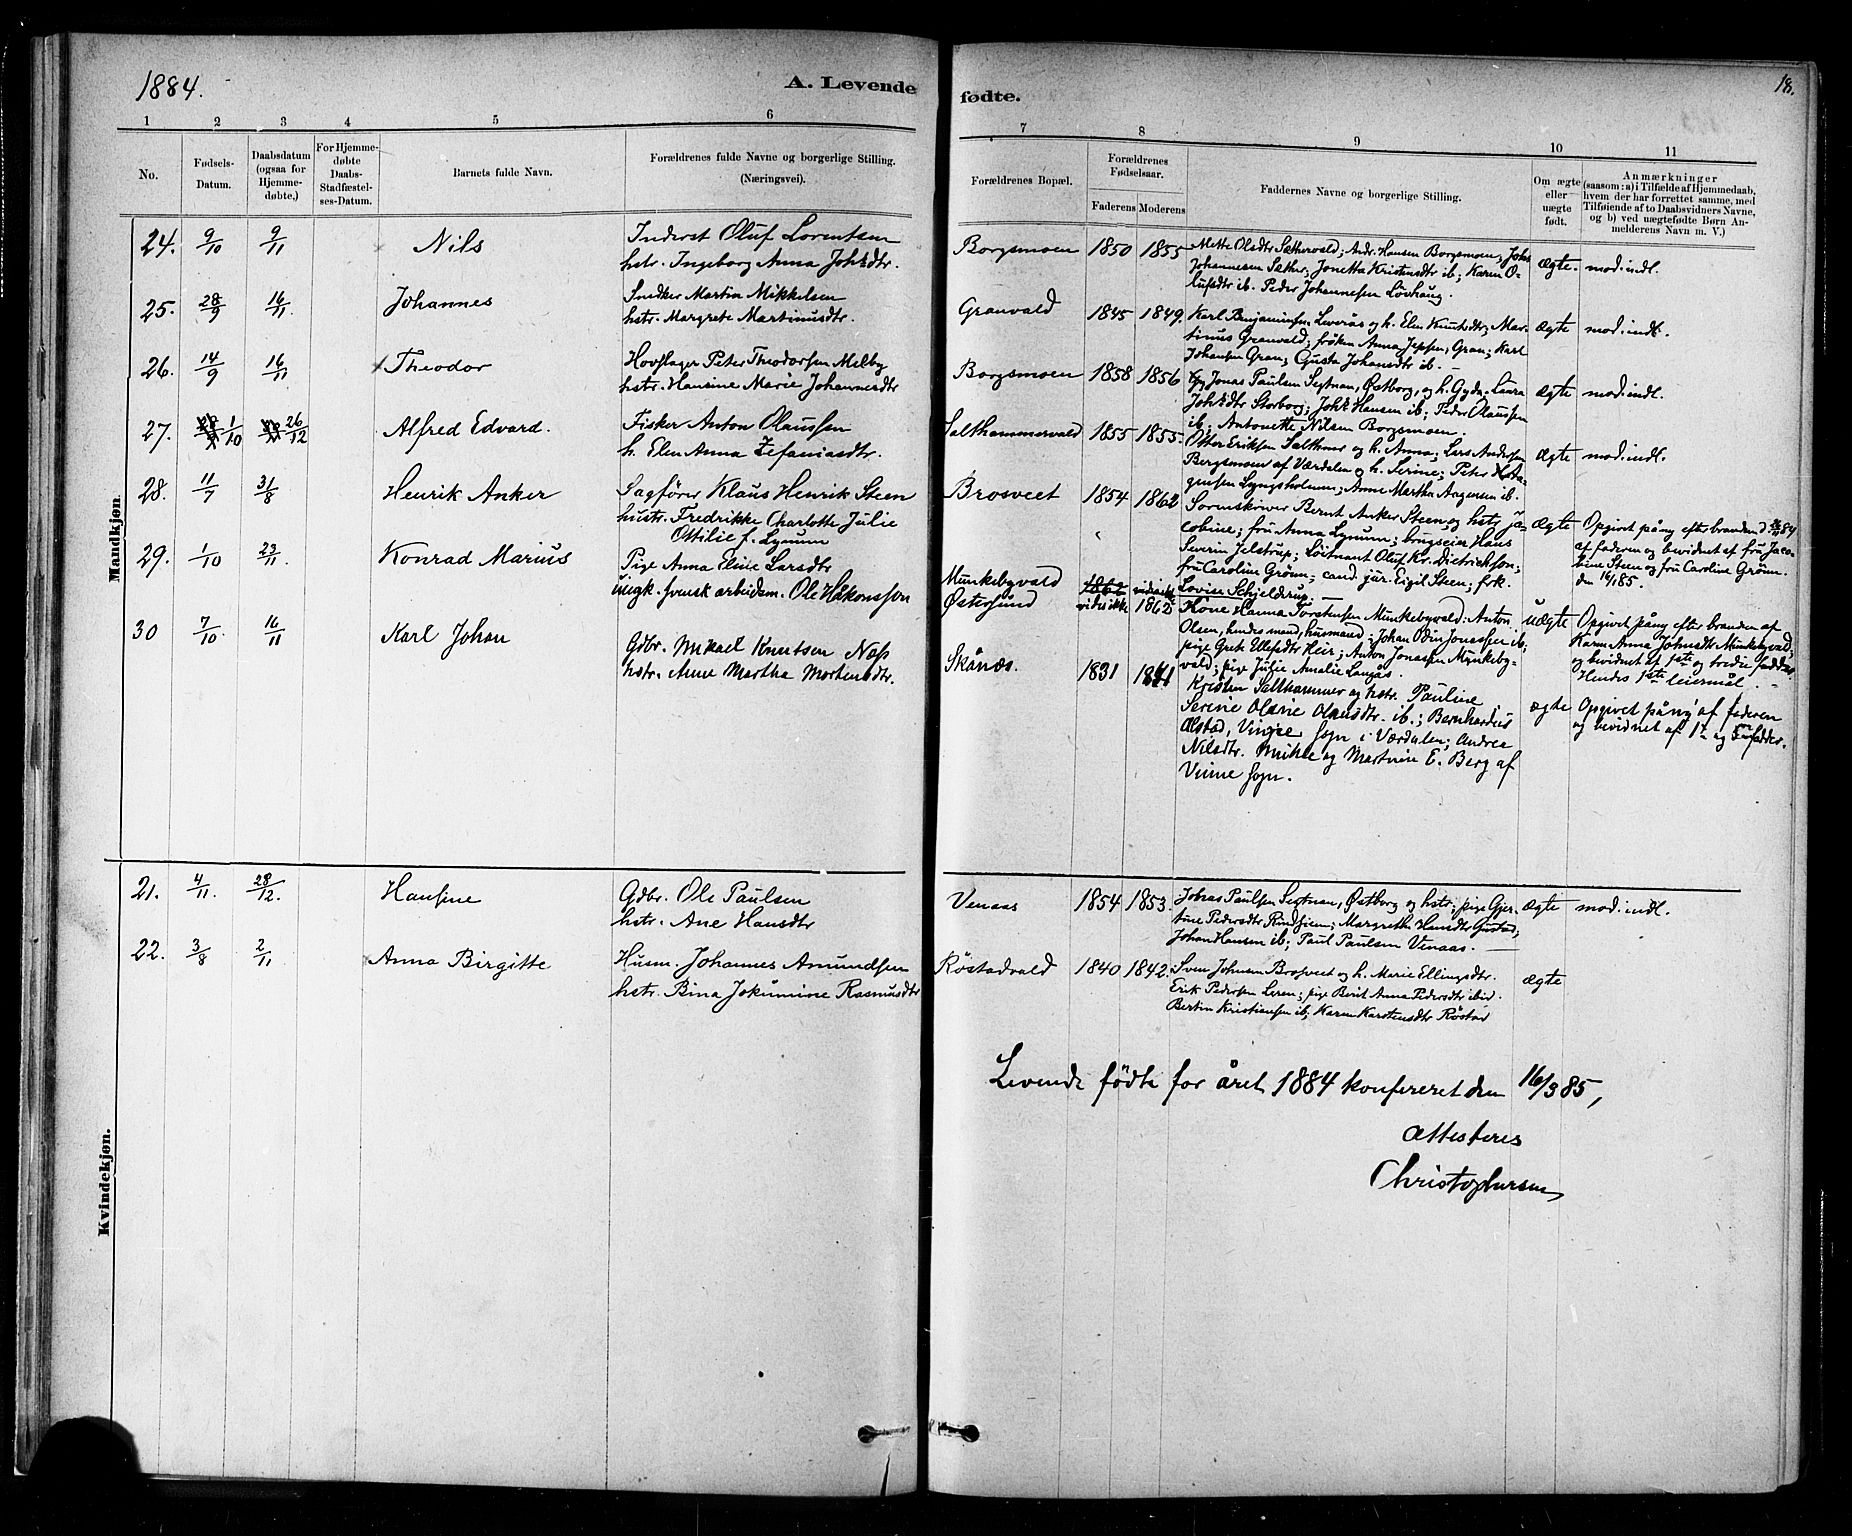 1884.
A. Levende fødte.
18.
1 2 3 4 5 6 7 8 9 10 11
No.
Fødsels-
Datum.
Daabsdatum
(ogsaa for
Hjemme-
døbte,)
For Hjemme-
døbte
Daabs-
Stadfæstel-
ses-Datum.
Barnets fulde Navn.
Forældrenes fulde Navne og borgerlige Stilling.
(Næringsvei).
Forældrenes Bopæl.
Forældrenes
Fødselsaar.
Faderens Moderens
Faddernes Navne og borgerlige Stilling.
Om ægte
eller
uægte
født.
Anmærkninger
(saasom: a) i Tilfælde af Hjemmedaab,
hvem der har forrettet samme, med
Tilføiende af to Daabsvidners Navne,
og b) ved uægtefødte Børn An-
melderens Navn m. V.)
Mandkjøn
24. 9/10 9/11 Nils
Inderst Oluf Lorentsen
hstr. Ingeborg Anna Johs.dtr.
Borgsmoen 1850 1855
Mette Olsdtr Sæthervald; Andr. Hansen Borgsmoen; Johs
Johannesen Sæther; Jonetta Kristensdtr ib; Karen O-
lufsdtr ib. Peder Johannesen Løvhaug.
ægte. mod. indl.
25. 28/9 16/11. Johannes
Snedker Martin Mikkelsen
hstr. Margrete Martinusdtr.
Granvald 1845 1849.
Karl Benjaminsen Leverås og h. Elen Knutsdtr; Mar-
tinus Granvald; frøken Anna Jepsen, Gran; Karl
Johansen Gran; Gusta Johansdtr ib. —
ægte mod. indl.
26. 14/9 16/11 Theodor
Hovslager Peter Theodorsen Melby
hstr. Hansine Marie Johannesdtr
Borgsmoen 1858 1856
Jonas Paulsen Segtnan, Østborg, og h. Gyda; Laura
Johs.dtr Storborg; Johs. Hansen ib; Peder Olaussen
ib; Antonette Nilsen Borgsmoen.
ægte mod. indl.
27. 1/10 26/12 Alfred Edvard.
Fisker Anton Olaussen
h. Elen Anna Zefaniasdtr.
Salthammervald 1855 1855.
Otter Eriksen Salthmer og h. Anna; Lars Andersen
Bergsmoen af Værdalen og h. Serine; Peter
Lyngsholmen; Anne Martha Aagensen ib.
ægte mod. indl.
28. 11/7 31/8 Henrik Anker
Sagfører Klaus Henrik Steen
hustr. Fredrikke Charlotte Julie
Ottilie f. Lynum
Brosveet 1854 1862
Sorenskriver Bernt Anker Steen og hstr Ja-
cobine; fru Anna Lynum; brugseier Hans
Severin Jelstrup; Løitnant Oluf Kr. Dietrichson;
fru Caroline Grønn; cand. jur. Eigil Steen; frk.
Lovise Schjelderup. —
ægte
Opgivet påny efter branden d 84
af faderen og bevidnet af fru Jaco-
bine Steen og fru Caroline Grønn.
den 16/1 85.
29. 1/10 23/11. Konrad Marius
Pige Anna Eline Larsdtr
Ungk. svensk arbeidsm. Ole Håkonsson
Munkebyvald
Østersund
vidsikke 1862
Kone Hanna Torstensen Munkebyvald; Anton
Olsen, hendes mand, husmand; Johan Odin Jonassen ib;
pige Grete Ellefsdtr Heir; Anton Jonassen Munkeby-
vald; pige Julie Amalie Langås.
uægte
Opgivet påny efter branden af
Karen Anna Johnsdtr Munkebyvald;
og bevidnet af 1ste og tredie fadder
Hendes 1ste leiermål. —
30 7/10. 16/11 Karl Johan
Gdbr. Mikael Knutsen Næs
hstr. Anne Martha Mortensdtr.
Skånæs. 1831 1841
Kristen Salthammer og hstr. Pauline
Serine Olavie Olausdtr. ib.; Bernhardus
Ølstad, Vinje sogn i Værdalen; Andrea
Nilsdtr. Mikle og Martine E. Berg af
Vinne sogn.
ægte
Opgivet påny af faderen
og bevidnet af 1ste og 5te fadder.
Kvindekjøn.
21. 4/11. 28/12. Hansine
Gdbr. Ole Paulsen
hstr. Ane Hansdtr
Venaas 1854 1853.
Jonas Paulsen Segtnan, Østborg og hstr; pige Gjer-
tine Pedersdtr Rindsem; Margrethe Hansdtr Gustad;
Johan Hansen ib; Paul Paulsen Venaas. —
ægte mod. indl.
22. 3/8 2/11 Anna Birgitte
Husm. Johannes Amundsen
hstr. Bina Jokumine Rasmusdtr
Røstadvald 1840 1842.
Sven Johnsen Brosveet og h. Marie Ellingsdtr.
Erik Pedersen Leren; pige Berit Anna Pedersdtr ibid.
Bertin Kristiansen ib; Karen Karstensdtr Røstad
ægte
Levende fødte for året 1884 konfereret den 16/3 85,
attesteres
Christophersen